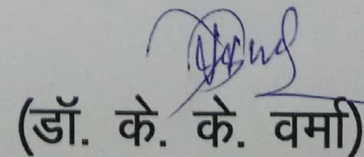 (डॉ. के. के. वर्मा)